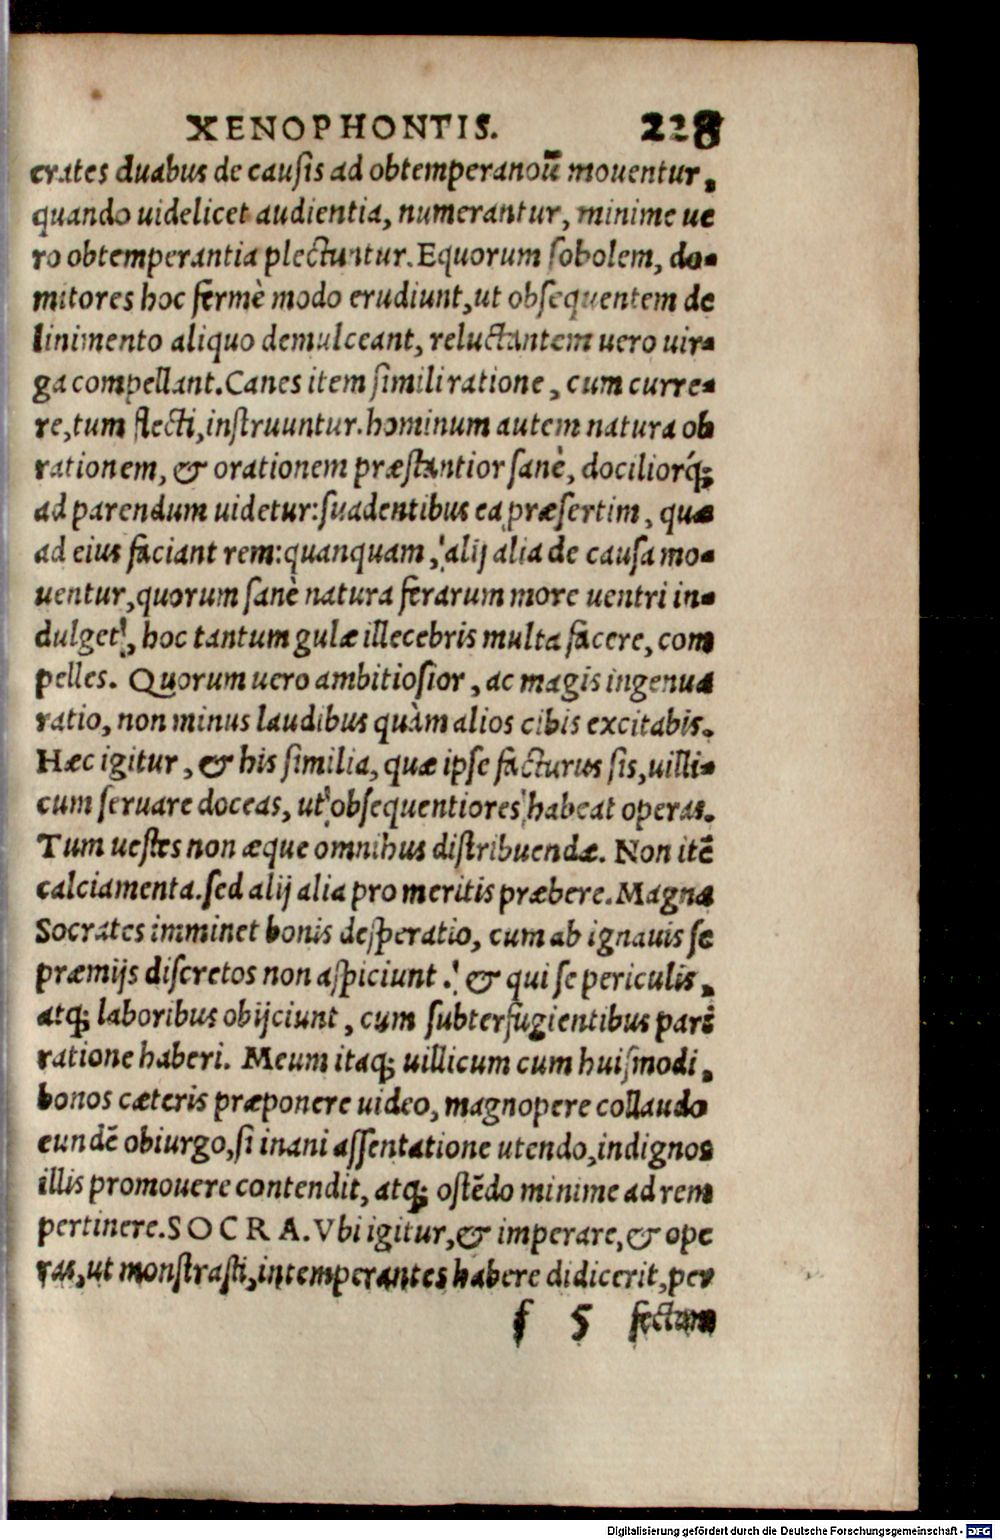 XENOPHONTIS. 228
crates duabus de causis ad obtemperandū mouentur,
quando uidelicet audientia, numerantur, minime ue
ro obtemperantia plectuntur. Equorum sobolem, do-
mitores hoc fermè modo erudiunt, ut obsequentem de
linimento aliquo demulceant, reluctantem uero uir-
ga compellant. Canes item simili ratione, cum curre-
re, tum flecti, instruuntur. hominum autem natura ob
rationem, & orationem præstantior sanè, dociliorq́;
ad parendum uidetur: suadentibus ea præsertim, quæ
ad eius faciant rem: quanquam, alij alia de causa mo-
uentur, quorum sanè natura ferarum more uentri in-
dulget, hoc tantum gulæ illecebris multa facere, com
pelles. Quorum uero ambitiosior, ac magis ingenua
ratio, non minus laudibus quàm alios cibis excitabis.
Hæc igitur, & his similia, quæ ipse facturus sis, uilli-
cum seruare doceas, ut obsequentiores habeat operas.
Tum uestes non æque omnibus distribuendæ. Non itē
calciamenta. sed alij alia pro meritis præbere. Magna
Socrates imminet bonis desperatio, cum ab ignauis se
præmijs discretos non aspiciunt. & qui se periculis,
atq; laboribus obijciunt, cum subterfugientibus pari
ratione haberi. Meum itaq; uillicum cum huismodi,
bonos cæteris præponere uideo, magnopere collaudo
eundē obiurgo, si inani assentatione utendo, indignos
illis promouere contendit, atq; ostēdo minime ad rem
pertinere. SOCRA. Vbi igitur, & imperare, & ope
ras, ut monstrasti, intemperantes habere didicerit, per
f 5 fectam
Digitalisierung gefördert durch die Deutsche Forschungsgemeinschaft - DFG